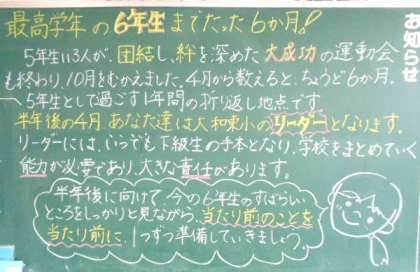 お知らせ
最高学年の6年生までたった6か月!
5年生113人が、団結し、絆を深めた大成功の運動会
も終わり、10月をむかえました。4月から数えると、ちょうど6か月。
5年生として過ごす1年間の折り返し地点です。
半年後の4月、あなた達は大和東小のリーダーとなります。
リーダーには、いつでも下級生の手本となり、学校をまとめていく
能力が必要であり、大きな責任があります。
半年後に向けて、今の6年生のすばらしい
ところをしっかりと見ながら、当たり前のことを
当たり前に、1つずつ準備していきましょう。